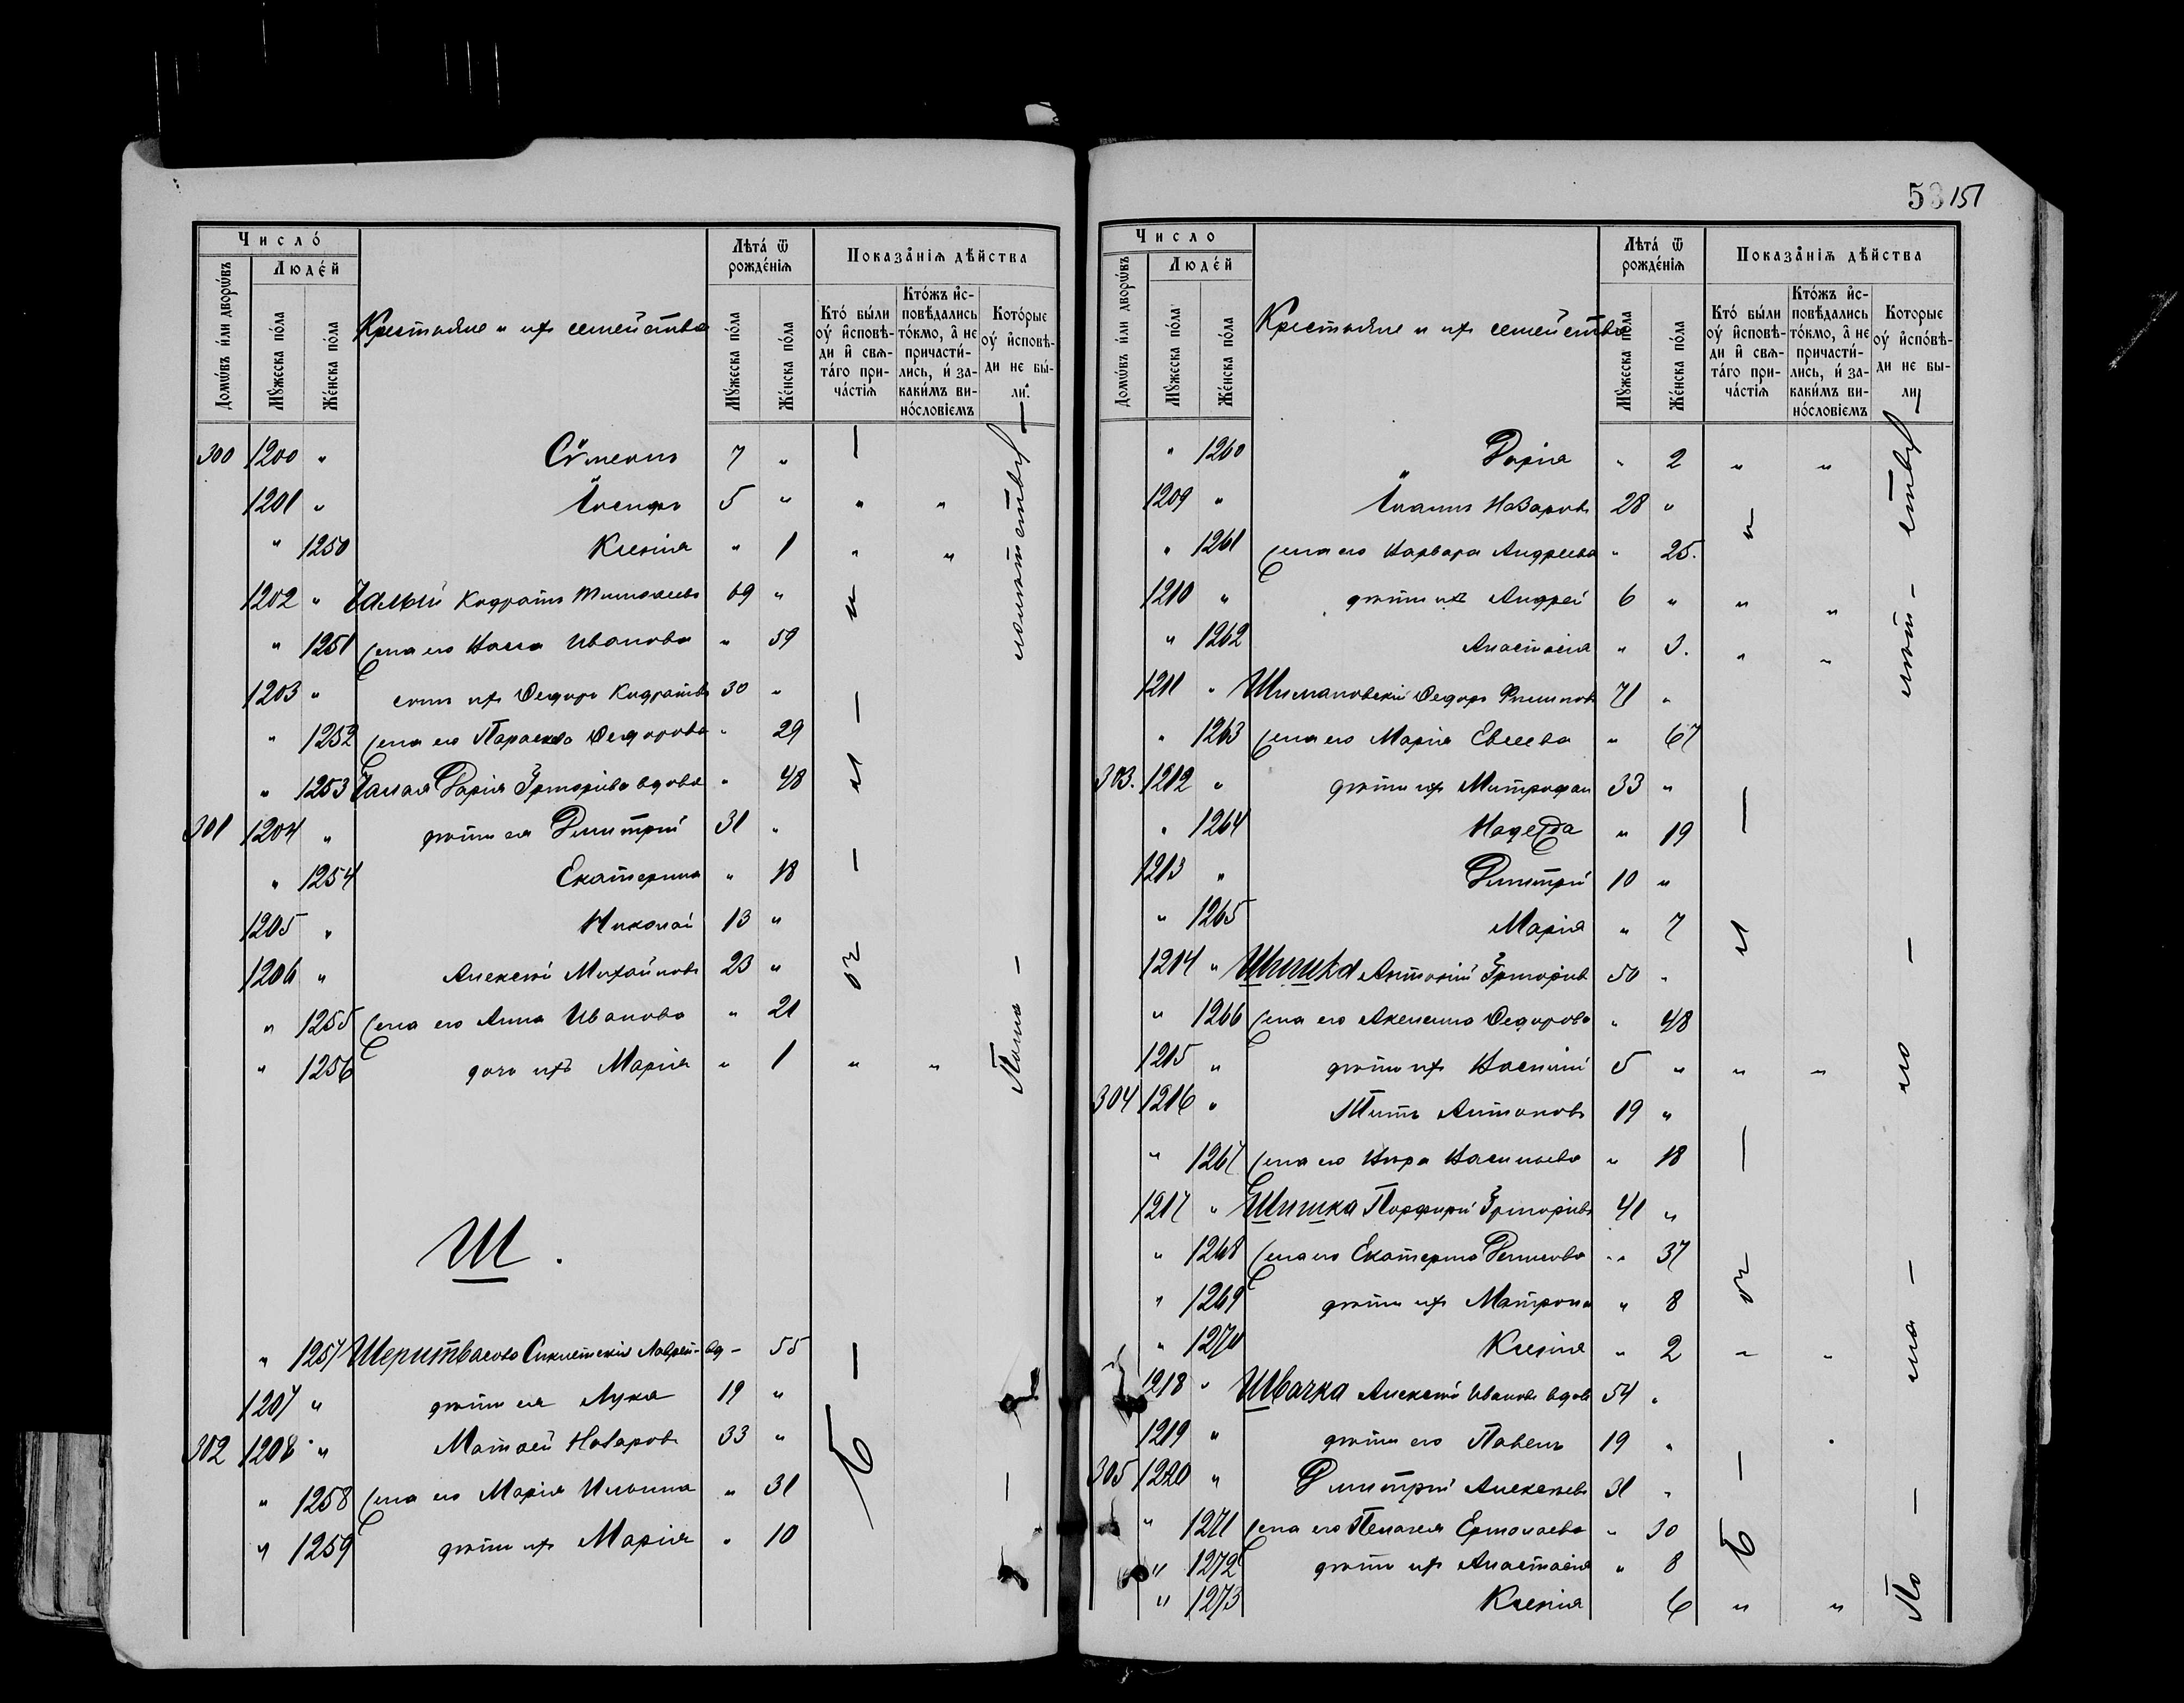 53 151
Число́
Людей
Домѡвъ и́ли дворѡ́въ
Мꙋжеска по́ла
Же́нска по́ла
Крестьяне и ихъ семейства
Лѣта́ ѿ рожде́нїѧ
Мꙋ́жеска по́ла
Же́нска по́ла
Показа̑нїѧ дѣ́йства
Кто́ бы́ли оу҆ и҆сповѣ-
ди и҆ свѧ-
та́го при-
ча́стїѧ
Кто́жъ и҆с-
повѣ́дались
то́кмо, а҆ не
причасти́-
лись, и҆ за-
каки́мъ ви-
носло́вїемъ
Кото́рые
оу҆ и҆сповѣ́-
ди не бы́-
ли
300 1200 „ Сѵмеонъ 7 „
1201 „ Іосифъ 5 „ „ „
„ 1250 Ксенія „ 1 „ „
1202 „ Чалый Кодратъ Тимоѳеевъ 69 „
„ 1251 жена его Васса Иванова „ 59
1203 „ сынъ ихъ Ѳедоръ Кодратовъ 30 „
„ 1252 жена его Параскева Ѳедорова „ 29
„ 1253 Чалая Дарія Григоріева вдова „ 48
301 1204 „ дѣти ея Димитрій 31 „
„ 1254 Екатерина „ 18
1205 „ Николай 13 „
1206 „ Алексѣй Михайловъ 23 „
„ 1255 жена его Анна Иванова „ 21
„ 1256 дочь ихъ Марія „ 1 „ „
Ш.
„ 1257 Шеритвасова Синклитикія вд – 55
1207 „ дѣти ея Лука 19 „
302 1208 „ Матѳей Назаровъ 33 „
„ 1258 жена его Марія Ильина „ 31
„ 1259 дѣти ихъ Марія „ 10
Число
Людей
Домѡвъ и́ли дворѡ́въ
Мꙋжеска по́ла
Же́нска по́ла
Крестьяне и ихъ семейства
Лѣта́ ѿ рожде́нїѧ
Мꙋ́жеска по́ла
Же́нска по́ла
Показа̑нїѧ дѣ́йства
Кто́ бы́ли
оу҆ и҆сповѣ́-
ди и҆ свѧ-
та́го при-
ча́стїѧ
Кто́жъ и҆с-
повѣ́дались
то́кмо, а҆ не
причасти́-
лись, и҆ за-
каки́мъ ви-
носло́вїемъ
Которые
оу҆ и҆спо́вѣ-
ди не бы-
ли
„ 1260 Дарія „ 2 „ „
1209 „ Іоаннъ Назаровъ 28 „
„ 1261 жена его Варвара Андреева „ 25.
1210 „ дѣти ихъ Андрей 6 „ „ „
„ 1262 Анастасія „ 3. „ „
1211 „ Шимановскій Ѳедоръ Филиповъ 71 „
„ 1263 жена его Марія Евсеева „ 67
303. 1212 „ дѣти ихъ Митрофан 33 „
„ 1264 Надежда „ 19
1213 „ Димитрій 10 „
„ 1265 Марія „ 7
1214 „ Шишка Антоній Григоріевъ 50 „
„ 1266 жена его Акилина Ѳедорова „ 48
1215 „ дѣти ихъ Василій 5 „ „ „
304 1216 „ Титъ Антоновъ 19 „
„ 1267 жена его Вѣра Васильева „ 18
1217 „ Шишка Порфирій Григоріевъ 41 „
„ 1268 жена его Екатерина Денисова „ 37
„ 1269 дѣти ихъ Матрона „ 8
„ 1270 Ксенія „ 2 „ „
1218 „ Швачка Алексѣй Ивановъ вдовъ 54 „
1219 „ дѣти его Павелъ 19 „
305 1220 „ Димитрій Алексѣевъ 31 „
„ 1271 жена его Пелагея Ермолаева „ 30
„ 1272 дѣти ихъ Анастасія „ 8
„ 1273 Ксенія 6 „ „